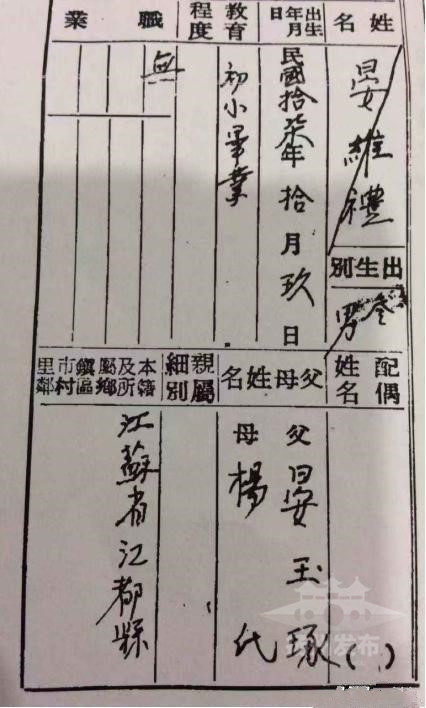 姓名
晏維禮
出生別
叁男
出生年月日
民國拾柒年拾月玖日
教育程度
初小畢業
職業
無
配偶姓名
父母姓名
父 晏玉琢( )
母 楊 代
親屬細別
本籍及所屬鄉鎮區市村里鄰
江蘇省江都縣
发布